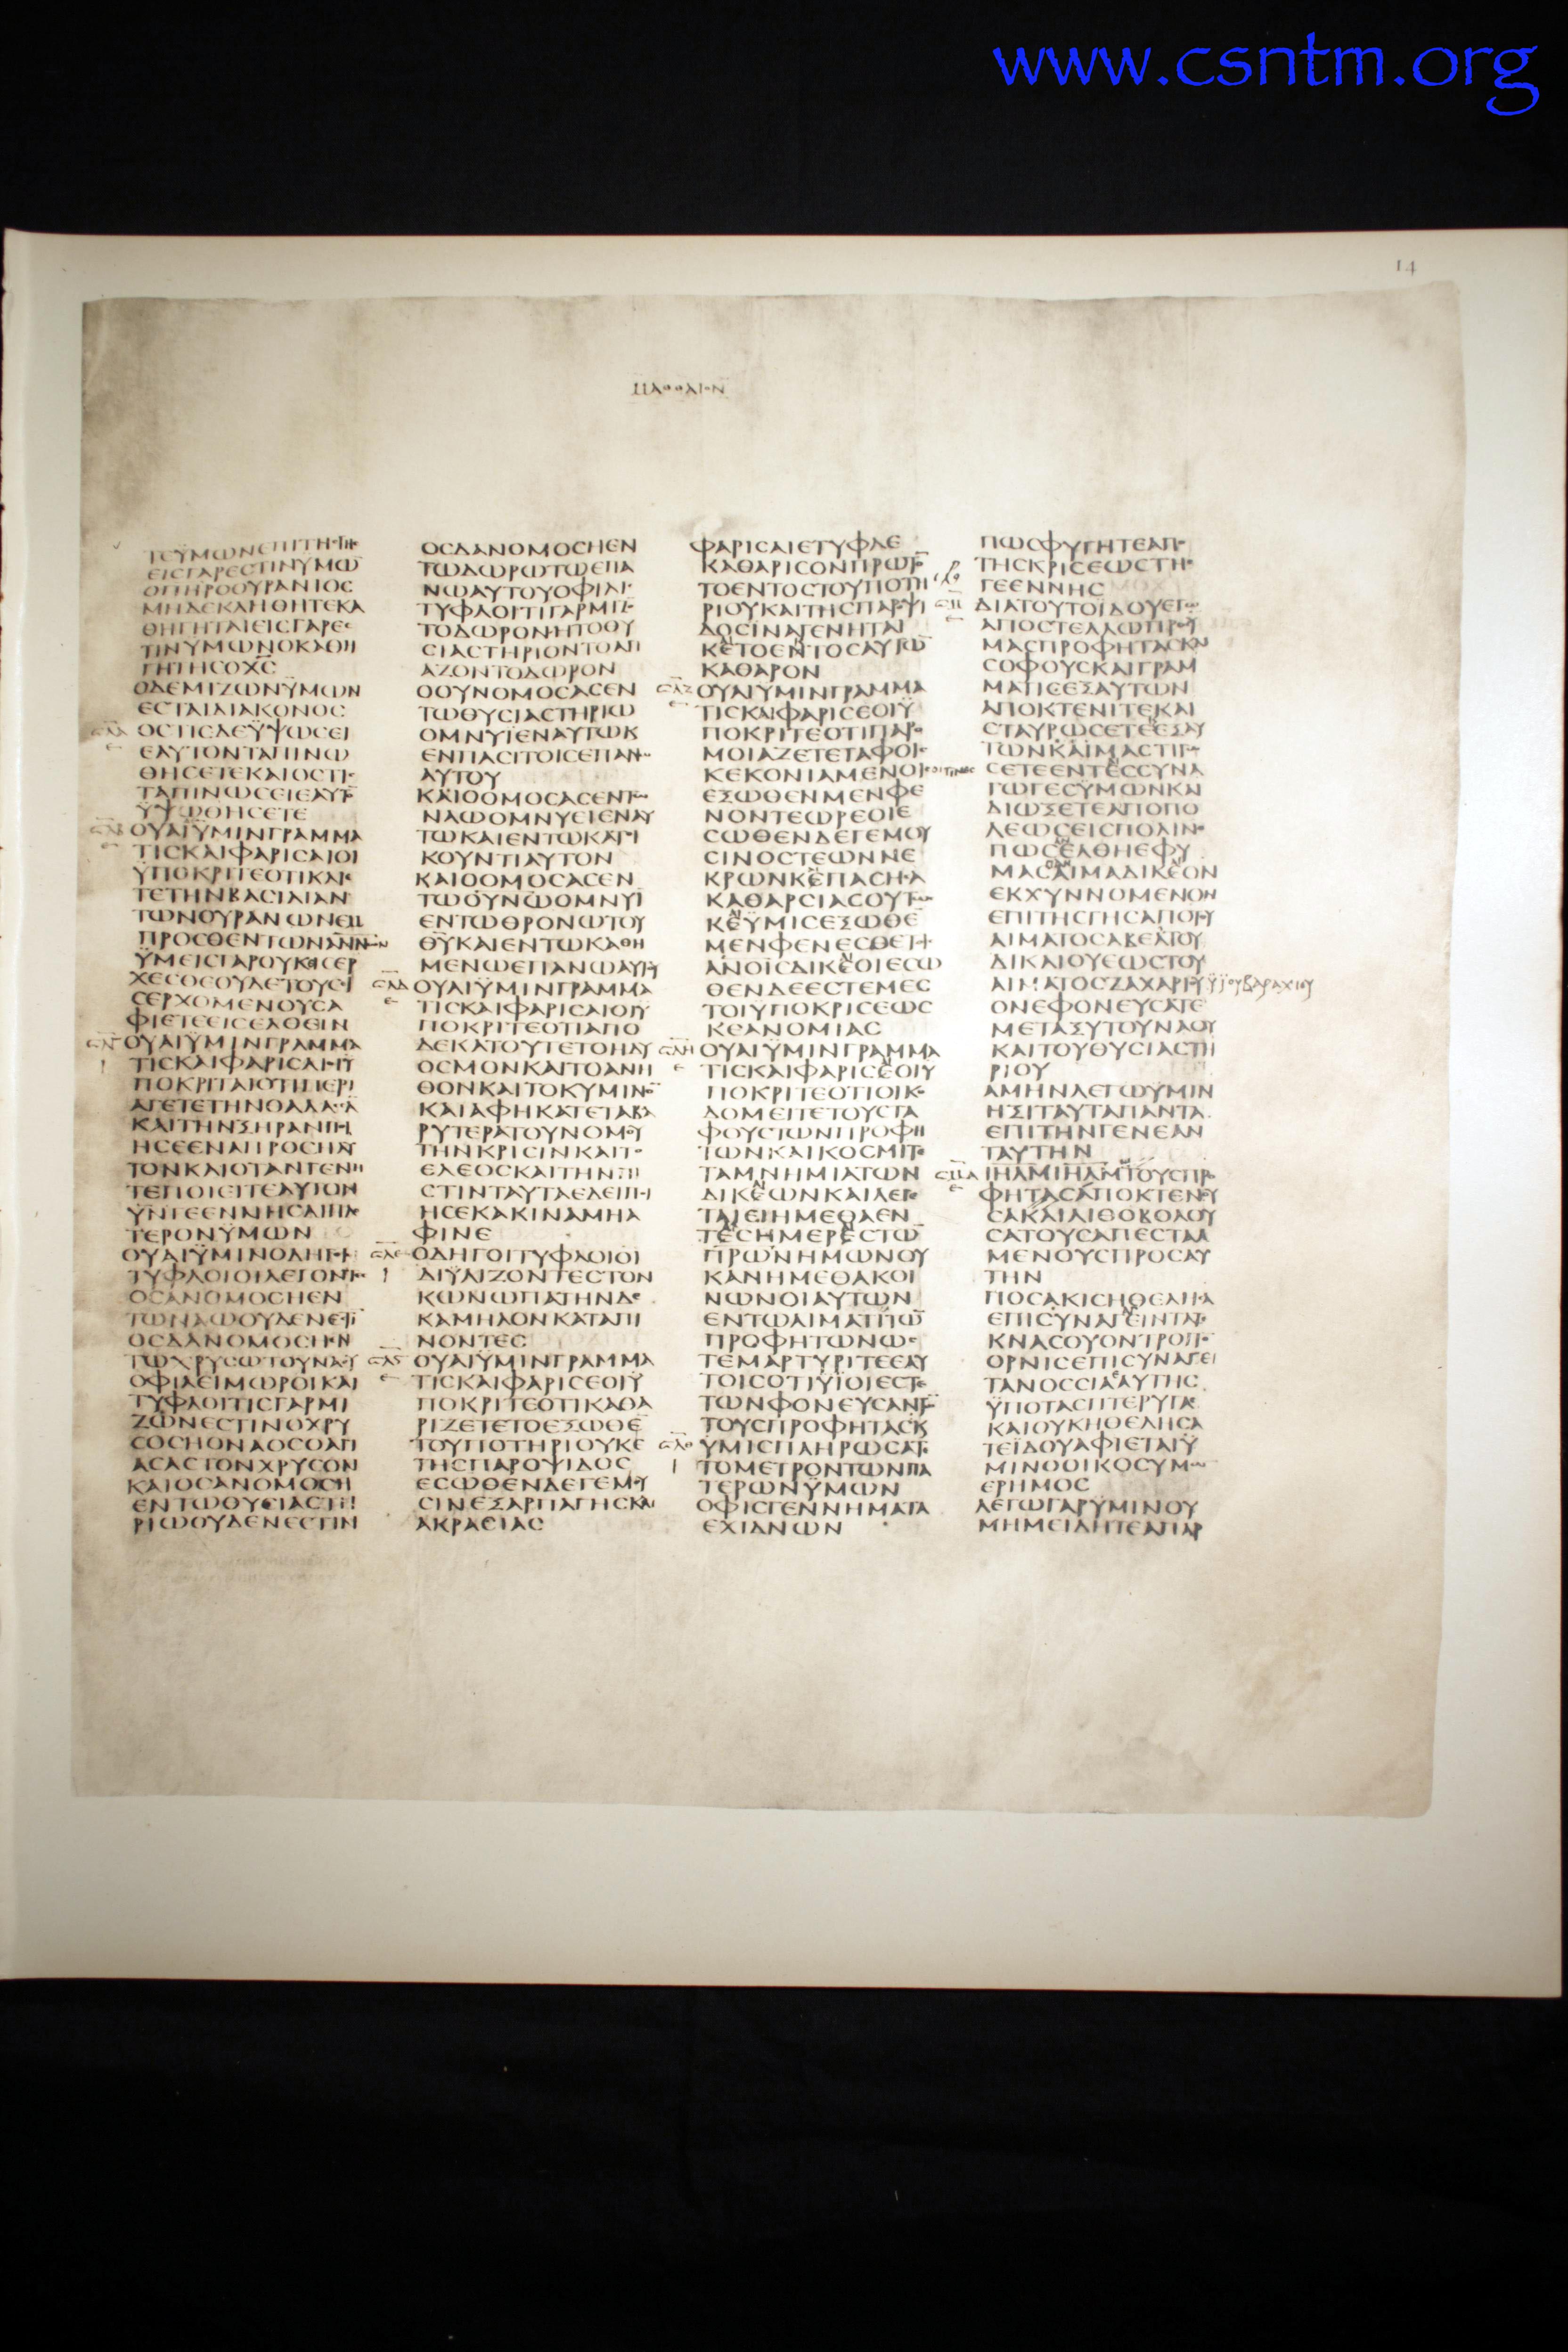 www.csntm.org
14
ΜΑΘΘΑΙΟΝ
ΕΙΣΓΑΡΕΣΤΙΝΥΜΩ
ΟΠΗΡΟΟΥΡΑΝΙΟΣ
ΜΗΔΕΚΛΗΘΗΤΕΚΑ
ΘΗΓΗΤΑΙΕΙΣΓΑΡΕΣ
ΤΙΝΥΜΩΝΟΚΑΘΗ
ΓΗΤΗΣΟΧΣ
ΟΔΕΜΙΖΩΝΫΜΩΝ
ΕΣΤΑΙΔΙΑΚΟΝΟΣ
ΕΑΥΤΟΝΤΑΠΙΝΩ
ΘΗΣΕΤΕΚΑΙΟΣΤΙΣ
ΤΑΠΙΝΩΣΕΙΕΑΥΤΟ
ΫΨΩΘΗΣΕΤΕ
ΟΥΑΙΫΜΙΝΓΡΑΜΜΑ
ΤΙΣΚΑΙΦΑΡΙΣΑΙΟΙ
ΥΠΟΚΡΙΤΕΟΤΙΚΛΙΕ
ΤΕΤΗΝΒΑΣΙΛΙΑΝ
ΤΩΝΟΥΡΑΝΩΝΕΜ
ΫΜΕΙΣΓΑΡΟΥΚΙΣΕΡ
ΧΕΣΘΕΟΥΔΕΤΟΥΣΕΙ
ΣΕΡΧΟΜΕΝΟΥΣΑ
ΦΙΕΤΕΕΙΣΕΛΘΕΙΝ
ΟΥΑΙΫΜΙΝΓΡΑΜΜΑ
ΤΙΣΚΑΙΦΑΡΙΣΑΙΟΙΫ
ΠΟΚΡΙΤΑΙΟΤΙΠΕΡΙ
ΑΓΕΤΕΤΗΝΘΑΛΑΣΣΑ
ΚΑΙΤΗΝΞΗΡΑΝΠΟΙ
ΗΣΕΕΝΑΠΡΟΣΗΛΥ
ΤΟΝΚΑΙΟΤΑΝΓΕΝΗ
ΤΕΠΟΙΕΙΤΕΑΥΤΟΝ
ΫΝΓΕΕΝΝΗΣΔΙΠΛΟ
ΤΕΡΟΝΫΜΩΝ
ΟΥΑΙΫΜΙΝΟΔΗΓΟΙ
ΤΥΦΛΟΙΟΙΛΕΓΟΝΤΕΣ
ΟΣΑΝΟΜΟΣΗΕΝ
ΤΩΝΑΩΟΥΔΕΝΕΣΤΙ
ΟΣΔΑΝΟΜΟΣΗΕΝ
ΤΩΧΡΥΣΩΤΟΥΝΑΟΥ
ΟΦΙΛΕΙΜΩΡΟΙΚΑΙ
ΤΥΦΛΟΙΤΙΣΓΑΡΜΙ
ΖΩΝΕΣΤΙΝΟΧΡΥ
ΣΟΣΗΟΝΑΟΣΟΑΓΙ
ΑΣΑΣΤΟΝΧΡΥΣΟΝ
ΚΑΙΟΣΑΝΟΜΟΣΗ
ΕΝΤΩΘΥΣΙΑΣΤΗ
ΡΙΩΟΥΔΕΝΕΣΤΙΝ
ΟΣΔΑΝΟΜΟΣΗΕΝ
ΤΩΔΩΡΩΤΩΕΠΑ
ΝΩΑΥΤΟΥΟΦΙΛΙ
ΤΥΦΛΟΙΤΙΓΑΡΜΙΖΟ
ΤΟΔΩΡΟΝΗΤΟΘΥ
ΣΙΑΣΤΗΡΙΟΝΤΟΑΓΙ
ΑΖΟΝΤΟΔΩΡΟΝ
ΟΟΥΝΟΜΟΣΑΣΕΝ
ΤΩΘΥΣΙΑΣΤΗΡΙΩ
ΟΜΝΥΪΕΝΑΥΤΩΚ
ΕΝΠΑΣΙΤΟΙΣΕΠΑΝΩ
ΑΥΤΟΥ
ΚΑΙΟΟΜΟΣΑΣΕΝΤΩ
ΝΑΩΟΜΝΥΕΙΕΝΑΥ
ΤΩΚΑΙΕΝΤΩΚΑΤΟΙ
ΚΟΥΝΤΙΑΥΤΟΝ
ΚΑΙΟΟΜΟΣΑΣΕΝ
ΤΩΟΥΝΩΟΜΝΥΙ
ΕΝΤΩΘΡΟΝΩΤΟΥ
ΘΥΚΑΙΕΝΤΩΚΑΘΗ
ΜΕΝΩΕΠΑΝΩΑΥΤΟΥ
ΟΥΑΙΫΜΙΝΓΡΑΜΜΑ
ΤΙΣΚΑΙΦΑΡΙΣΑΙΟΙΫ
ΠΟΚΡΙΤΕΟΤΙΑΠΟ
ΔΕΚΑΤΟΥΤΕΤΟΗΔΥ
ΟΣΜΟΝΚΑΙΤΟΑΝΗ
ΘΟΝΚΑΙΤΟΚΥΜΙΝΟ
ΚΑΙΑΦΗΚΑΤΕΤΑΒΑ
ΡΥΤΕΡΑΤΟΥΝΟΜΟΥ
ΤΗΝΚΡΙΣΙΝΚΑΙΤΟ
ΕΛΕΟΣΚΑΙΤΗΝΠΙ
ΣΤΙΝΤΑΥΤΑΕΔΕΙΠΟΙ
ΗΣΕΚΑΚΙΝΑΜΗΑ
ΦΙΝΕ
ΟΔΗΓΟΙΤΥΦΛΟΙΟΙ
ΔΙΫΛΙΖΟΝΤΕΣΤΟΝ
ΚΩΝΩΠΑΤΗΝΔΕ
ΚΑΜΗΛΟΝΚΑΤΑΠΙ
ΝΟΝΤΕΣ
ΟΥΑΙΫΜΙΝΓΡΑΜΜΑ
ΤΙΣΚΑΙΦΑΡΙΣΕΟΙΫ
ΠΟΚΡΙΤΕΟΤΙΚΑΘΑ
ΡΙΖΕΤΕΤΟΕΞΩΘΕ
ΤΟΥΠΟΤΗΡΙΟΥΚΕ
ΤΗΣΠΑΡΟΨΙΔΟΣ
ΕΣΩΘΕΝΔΕΓΕΜΟΥ
ΣΙΝΕΞΑΡΠΑΓΗΣΚΑΙ
ΑΚΡΑΣΙΑΣ
ΦΑΡΙΣΑΙΕΤΥΦΛΕ
ΚΑΘΑΡΙΣΟΝΠΡΩΤΟ
ΤΟΕΝΤΟΣΤΟΥΠΟΤΗ
ΡΙΟΥΚΑΙΤΗΣΠΑΡΟΨΙ
ΔΟΣΙΝΑΓΕΝΗΤΑΙ
ΚΕΤΟΕΝΤΟΣΑΥΤΩ
ΚΑΘΑΡΟΝ
ΟΥΑΙΥΜΙΝΓΡΑΜΜΑ
ΤΙΣΚΑΙΦΑΡΙΣΕΟΙΫ
ΠΟΚΡΙΤΕΟΤΙΠΑΡΟ
ΜΟΙΑΖΕΤΕΤΑΦΟΙΣ
ΚΕΚΟΝΙΑΜΕΝΟΙΣ
ΕΞΩΘΕΝΜΕΝΦΕ
ΝΟΝΤΕΩΡΕΟΙΕ
ΣΩΘΕΝΔΕΓΕΜΟΥ
ΣΙΝΟΣΤΕΩΝΝΕ
ΚΡΩΝΚΕΠΑΣΗΣΑ
ΚΑΘΑΡΣΙΑΣΟΥΤΩΣ
ΚΕΫΜΙΣΕΞΩΘΕ
ΜΕΝΦΕΝΕΣΘΕΤΟΙΣ
ΑΝΟΙΣΔΙΚΕΟΙΕΣΩ
ΘΕΝΔΕΕΣΤΕΜΕΣ
ΤΟΙΥΠΟΚΡΙΣΕΩΣ
ΚΕΑΝΟΜΙΑΣ
ΟΥΑΙΫΜΙΝΓΡΑΜΜΑ
ΤΙΣΚΑΙΦΑΡΙΣΕΟΙΥ
ΠΟΚΡΙΤΕΟΤΙΟΙΚΟ
ΔΟΜΕΙΤΕΤΟΥΣΤΑ
ΦΟΥΣΤΩΝΠΡΟΦΗ
ΤΩΝΚΑΙΚΟΣΜΙΤΕ
ΤΑΜΝΗΜΙΑΤΩΝ
ΔΙΚΕΩΝΚΑΙΛΕΓΕ
ΤΑΙΕΙΗΜΕΘΑΕΝ
ΤΕΣΗΜΕΡΕΣΤΩ
ΠΡΩΝΗΜΩΝΟΥ
ΚΑΝΗΜΕΘΑΚΟΙ
ΝΩΝΟΙΑΥΤΩΝ
ΕΝΤΩΑΙΜΑΤΙΤΩ
ΠΡΟΦΗΤΩΝΩΣ
ΤΕΜΑΡΤΥΡΙΤΕΕΑΥ
ΤΟΙΣΟΤΙΫΙΟΙΕΣΤΕ
ΤΩΝΦΟΝΕΥΣΑΝΤΩ
ΤΟΥΣΠΡΟΦΗΤΑΣΚ
ΥΜΙΣΠΛΗΡΩΣΑΤΕ
ΤΟΜΕΤΡΟΝΤΩΝΠΑ
ΤΕΡΩΝΫΜΩΝ
ΟΦΙΣΓΕΝΝΗΜΑΤΑ
ΕΧΙΔΝΩΝ
ΠΩΣΦΥΓΗΤΕΑΠΟ
ΤΗΣΚΡΙΣΕΩΣΤΗΣ
ΓΕΕΝΝΗΣ
ΔΙΑΤΟΥΤΟΪΔΟΥΕΓΩ
ΑΠΟΣΤΕΛΛΩΠΡΟΣΥ
ΜΑΣΠΡΟΦΗΤΑΣΚΑΙ
ΣΟΦΟΥΣΚΑΙΓΡΑΜ
ΜΑΤΙΣΕΞΑΥΤΩΝ
ΑΠΟΚΤΕΝΙΤΕΚΑΙ
ΣΤΑΥΡΩΣΕΤΕΕΞΑΥ
ΤΩΝΚΑΙΜΑΣΤΙΓΩ
ΣΕΤΕΕΝΤΕΣΣΥΝΑ
ΓΩΓΕΣΫΜΩΝΚΑΙ
ΔΙΩΞΕΤΕΑΠΟΠΟ
ΛΕΩΣΕΙΣΠΟΛΙΝ
ΠΩΣΕΛΘΗΕΦΥ
ΜΑΣΑΙΜΑΔΙΚΕΟΝ
ΕΚΧΥΝΝΟΜΕΝΟΝ
ΕΠΙΤΗΣΓΗΣΑΠΟΤΟΥ
ΑΙΜΑΤΟΣΑΒΕΛΤΟΥ
ΔΙΚΑΙΟΥΕΩΣΤΟΥ
ΑΙΜΑΤΟΣΖΑΧΑΡΙΟΥ ϋϊουβαραχιου
ΟΝΕΦΟΝΕΥΣΑΤΕ
ΜΕΤΑΞΥΤΟΥΝΑΟΥ
ΚΑΙΤΟΥΘΥΣΙΑΣΤΗ
ΡΙΟΥ
ΑΜΗΝΛΕΓΩΫΜΙΝ
ΗΞΙΤΑΥΤΑΠΑΝΤΑ
ΕΠΙΤΗΝΓΕΝΕΑΝ
ΤΑΥΤΗΝ
ΙΗΛΜΙΗΛΜΗΤΟΥΣΠΡΟ
ΦΗΤΑΣΑΠΟΚΤΕΝΟΥ
ΣΑΚΑΙΛΙΘΟΒΟΛΟΥ
ΣΑΤΟΥΣΑΠΕΣΤΑΛ
ΜΕΝΟΥΣΠΡΟΣΑΥ
ΤΗΝ
ΠΟΣΑΚΙΣΗΘΕΛΗΣΑ
ΕΠΙΣΥΝΑΓΕΙΝΤΑΤΕ
ΚΝΑΣΟΥΟΝΤΡΟΠΟ
ΟΡΝΙΣΕΠΙΣΥΝΑΓΕΙ
ΤΑΝΟΣΣΙΑΑΥΤΗΣ
ΫΠΟΤΑΣΠΤΕΡΥΓΑΣ
ΚΑΙΟΥΚΗΘΕΛΗΣΑ
ΤΕΪΔΟΥΑΦΙΕΤΑΙΫ
ΜΙΝΟΟΙΚΟΣΥΜΩΝ
ΕΡΗΜΟΣ
ΛΕΓΩΓΑΡΫΜΙΝΟΥ
ΜΗΜΕΙΔΗΤΕΑΠΑΡ